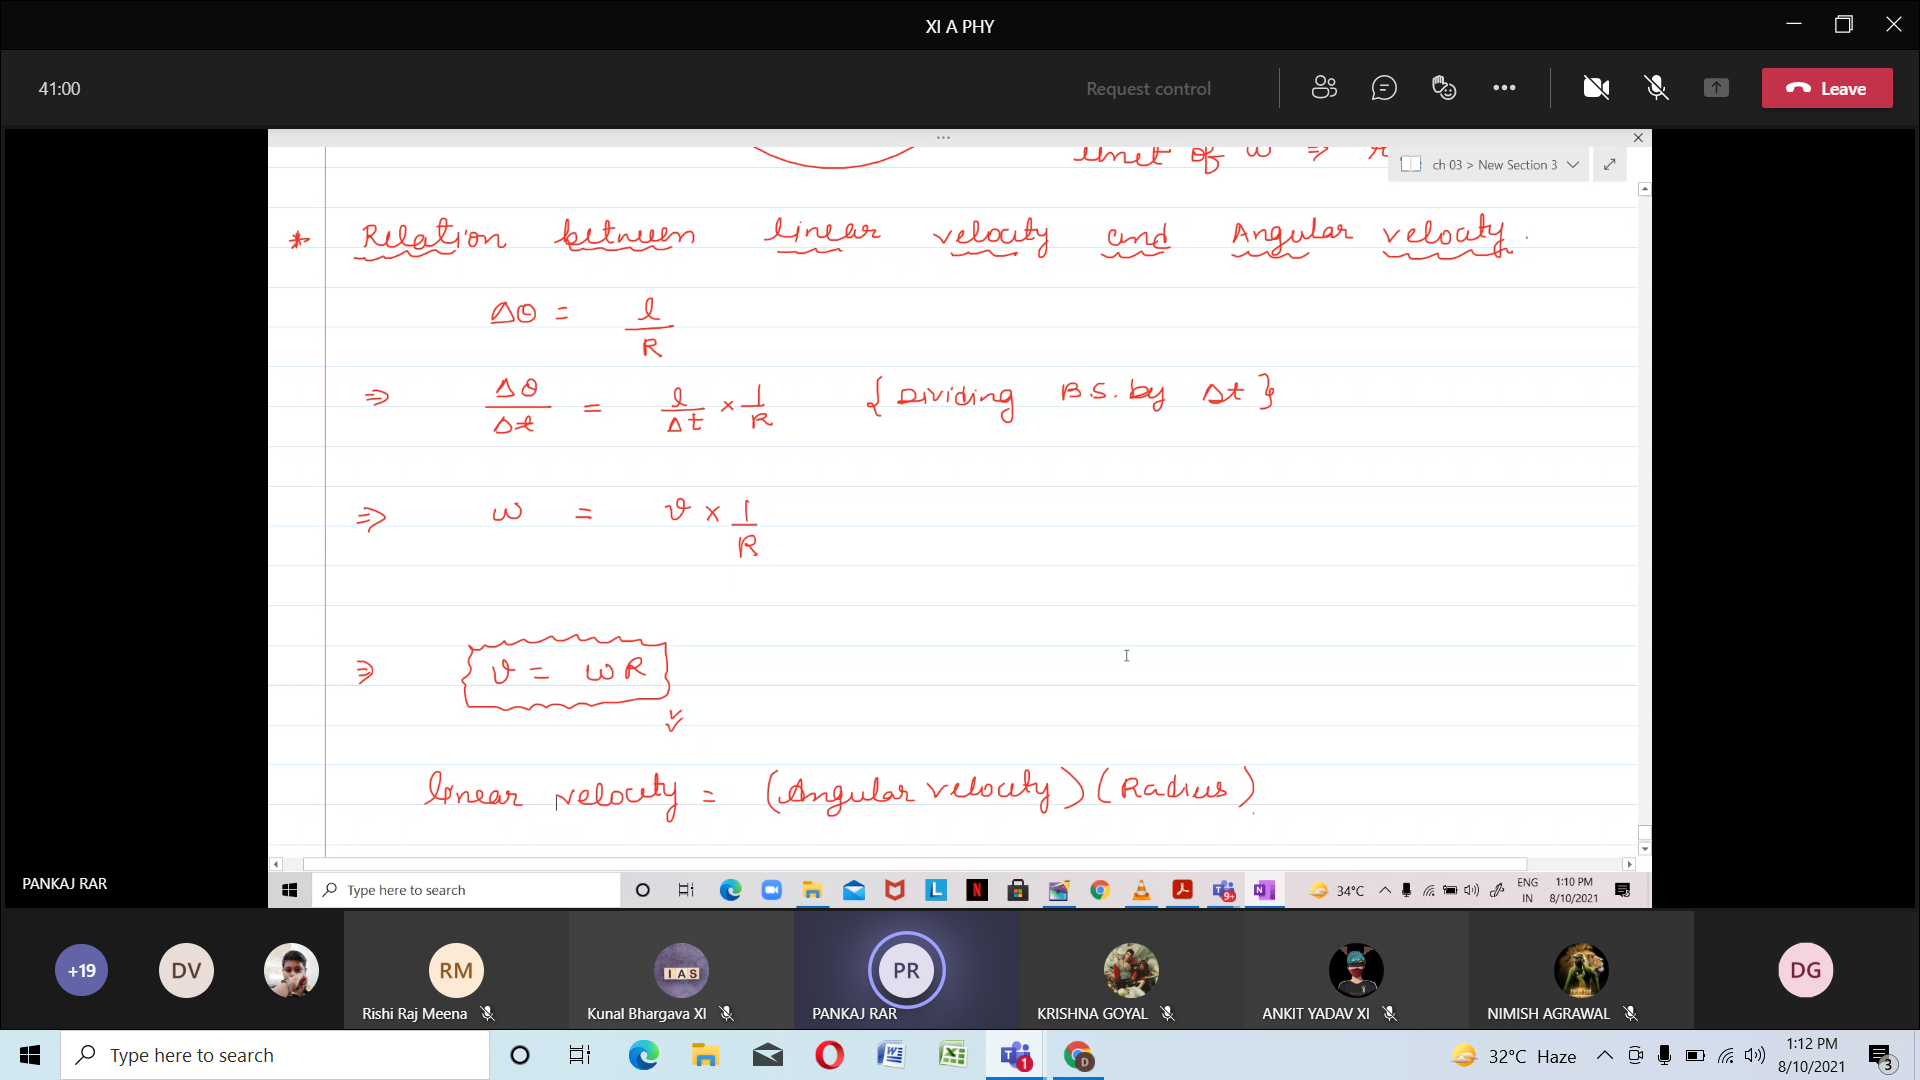 XI A PHY
41:00
Request control
Leave
unit of ω ⇒
ch 03 > New Section 3
* Relation between linear velocity and Angular velocity.
Δθ = l/R
⇒ Δθ/Δt = l/Δt × 1/R { Dividing B.S. by Δt }
⇒ ω = v × 1/R
⇒ v = ωR
linear velocity = (Angular velocity) (Radius)
PANKAJ RAR
Type here to search
34°C
ENG
IN
1:10 PM
8/10/2021
+19
DV
RM
Rishi Raj Meena
IAS
Kunal Bhargava XI
PR
PANKAJ RAR
KRISHNA GOYAL
ANKIT YADAV XI
NIMISH AGRAWAL
DG
Type here to search
32°C Haze
1:12 PM
8/10/2021
3